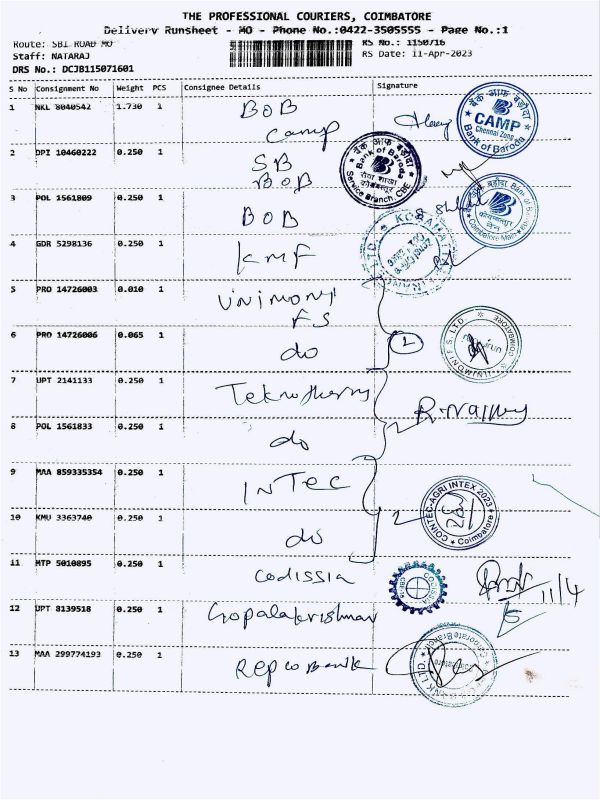 THE PROFESSIONAL COURIERS, COIMBATORE
Delivery Runsheet - MO - Phone No.:0422-3505555 - Page No.:1
Route: SBI ROAD MO
RS No.: 1150716
Staff: NATARAJ
RS Date: 11-Apr-2023
DRS No.: DCJB115071601
S No Consignment No Weight PCS Consignee Details Signature
1 NKL 8040542 1.730 1 BOB
Camp
बैंक ऑफ बड़ौदा CAMP Chennai Zone Bank of Baroda
2 DPI 10460222 0.250 1 SB
BOB
बैंक ऑफ बड़ौदा Bank of Baroda सेवा शाखा कोयम्बत्तूर Service Branch, CBE
3 POL 1561809 0.250 1 BOB
Bank of Baroda
4 GDR 5298136 0.250 1 KMF
5 PRO 14726003 0.010 1 Unimoni
FS
6 PRO 14726006 0.065 1 do
1
COIMBATORE
7 UPT 2141133 0.250 1
8 POL 1561833 0.250 1 do
9 MAA 859335354 0.250 1 INTEC
COINTEC-AGRI INTEX 2023 Coimbatore
10 KMU 3363740 0.250 1 do
2
11 MTP 5010895 0.250 1 Codissia
CODISSIA
11/4
12 UPT 8139518 0.250 1 Gopalakrishnan
13 MAA 299774193 0.250 1 Repco Bank